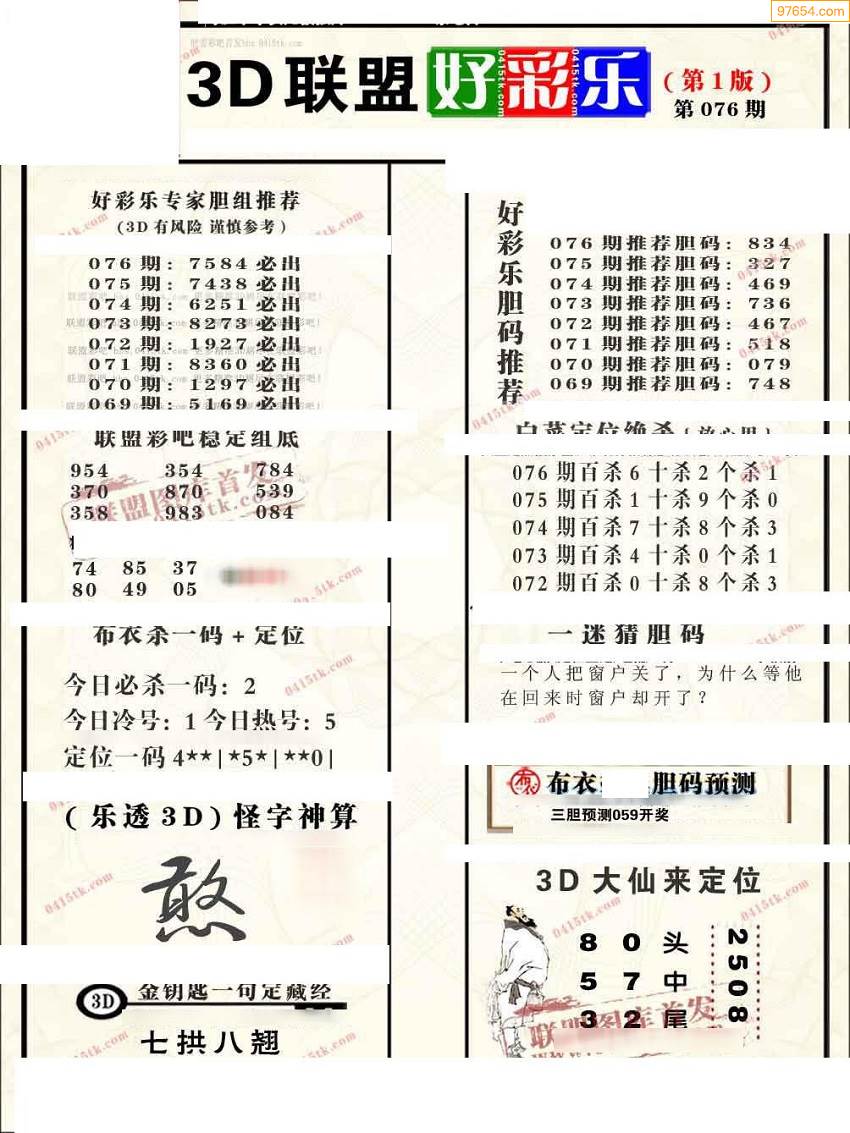 97654.com
3D联盟好彩乐
(第1版)
第076期
好彩乐专家胆组推荐
(3D有风险 谨慎参考)
076期: 7584必出
075期: 7438必出
074期: 6251必出
073期: 8273必出
072期: 1927必出
071期: 8360必出
070期: 1297必出
069期: 5169必出
联盟彩吧稳定组底
954 354 784
370 870 539
358 983 084
74 85 37
80 49 05
布衣杀一码+定位
今日必杀一码: 2
今日冷号: 1 今日热号: 5
定位一码 4**|*5*|**0|
(乐透3D)怪字神算
憨
3D 金钥匙一句定藏经
七拱八翘
好彩乐胆码推荐
076期推荐胆码: 834
075期推荐胆码: 327
074期推荐胆码: 469
073期推荐胆码: 736
072期推荐胆码: 467
071期推荐胆码: 518
070期推荐胆码: 079
069期推荐胆码: 748
白菜定位绝杀(放心用)
076期百杀6十杀2个杀1
075期百杀1十杀9个杀0
074期百杀7十杀8个杀3
073期百杀4十杀0个杀1
072期百杀0十杀8个杀3
一迷猜胆码
一个人把窗户关了，为什么等他
在回来时窗户却开了？
布衣 胆码预测
三胆预测059开奖
3D大仙来定位
8 0 头
5 7 中
3 2 尾
2508
联盟图库首发
0415tk.com